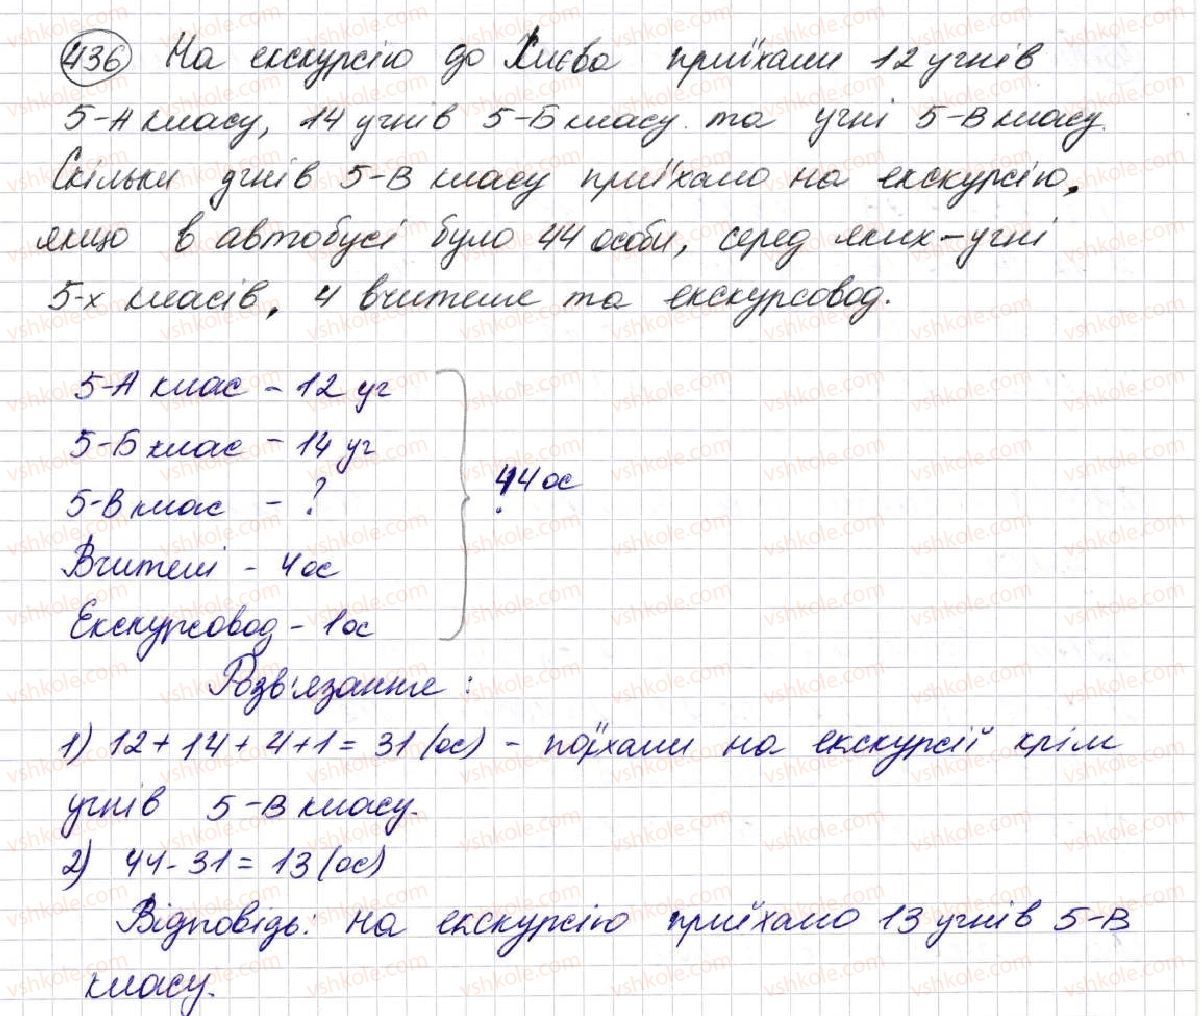 436 На екскурсію до Києва приїхали 12 учнів
5-А класу, 14 учнів 5-Б класу та учні 5-В класу.
Скільки учнів 5-В класу приїхало на екскурсію,
якщо в автобусі було 44 особи, серед яких - учні
5-х класів, 4 вчителі та екскурсовод.
5-А клас - 12 уч
5-Б клас - 14 уч
5-В клас - ?
44 ос
Вчителі - 4 ос
Екскурсовод - 1 ос
Розв'язання:
1) 12 + 14 + 4 + 1 = 31 (ос) - поїхали на екскурсії крім
учнів 5-В класу.
2) 44 - 31 = 13 (ос)
Відповідь: на екскурсію приїхало 13 учнів 5-В
класу.